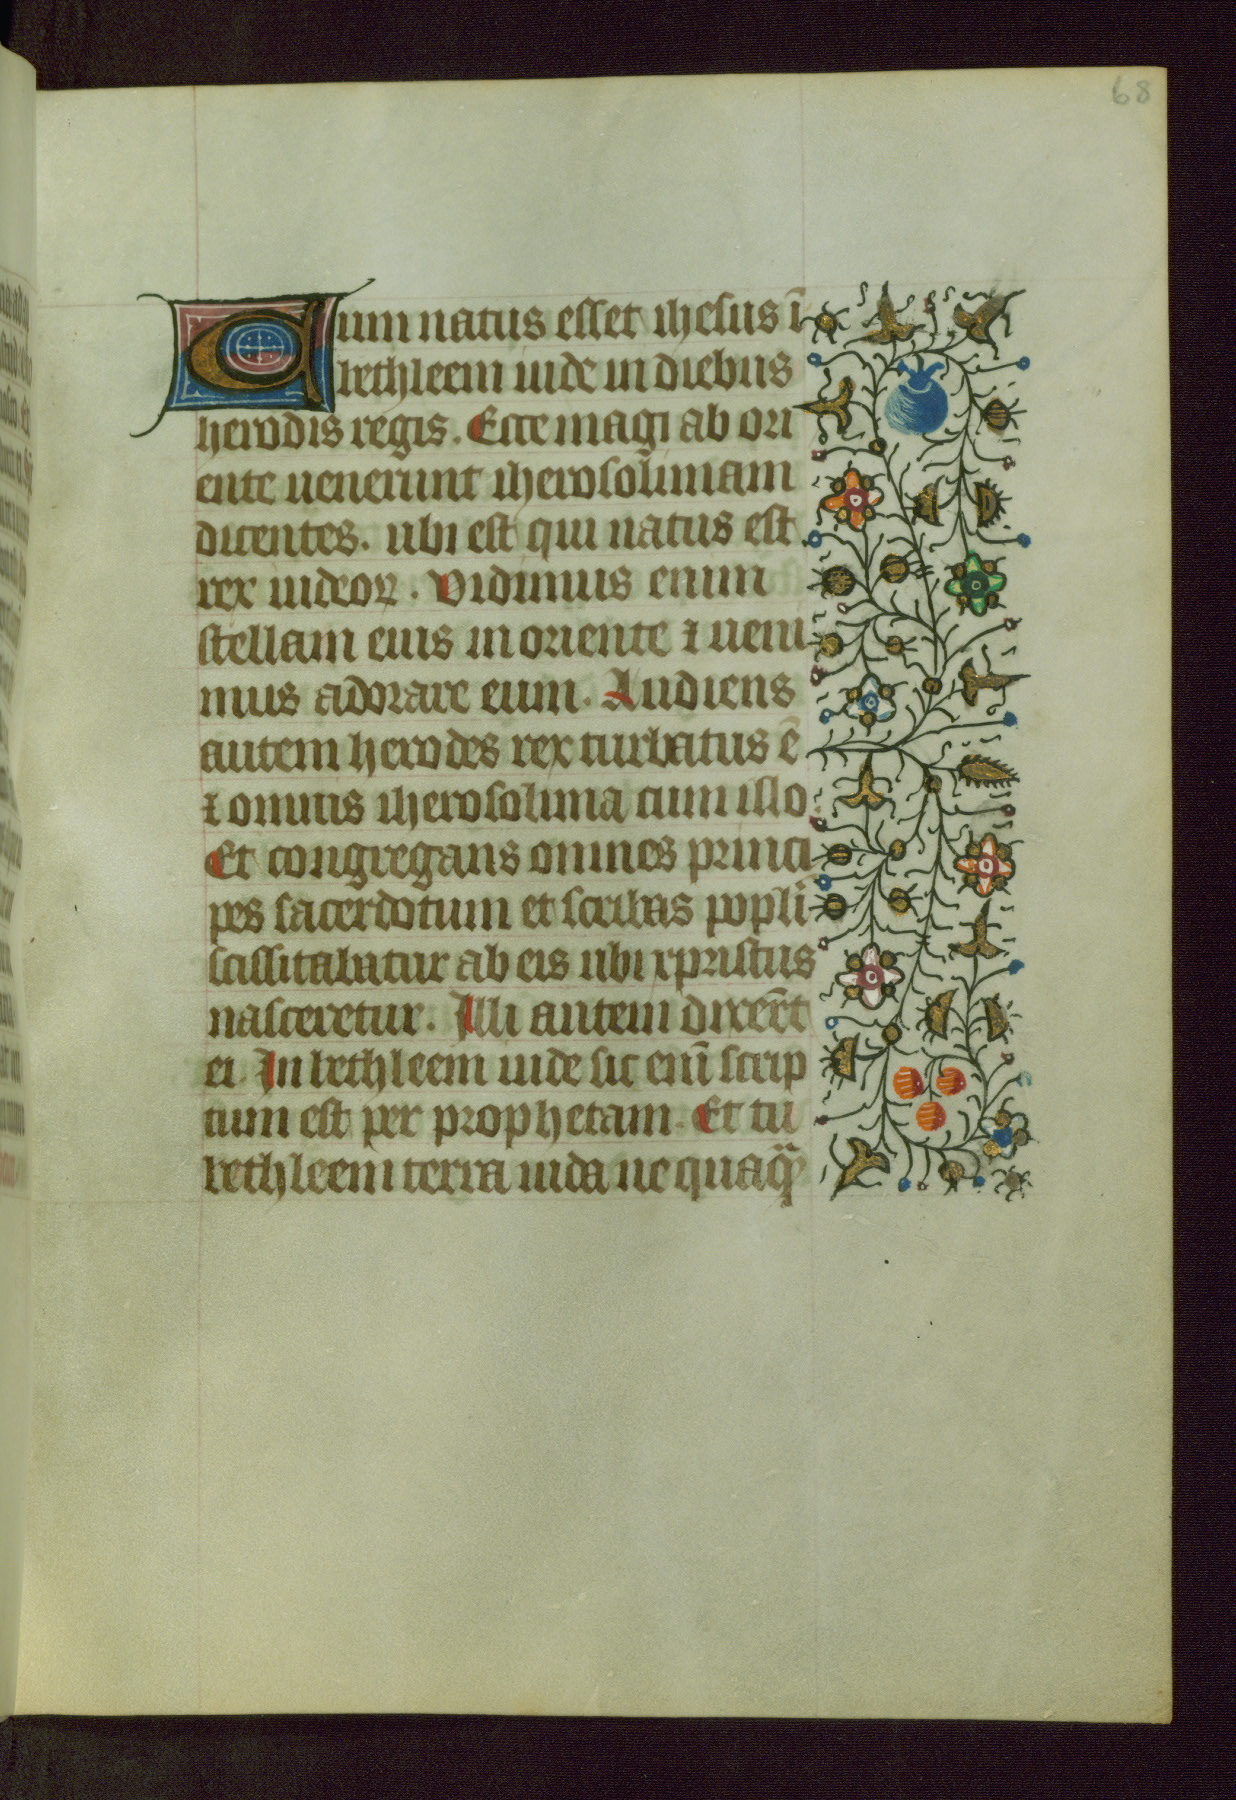 68
Cum natus esset ihesus ī
bethleem iude in diebus
herodis regis. Ecce magi ab ori
ente uenerunt iherosolimam
dicentes. ubi est qui natus est
rex iudeoꝝ. Vidimus enim
stellam eius in oriente ⁊ ueni
mus adorare eum. Audiens
autem herodes rex turbatus ē
⁊ omnis iherosolima cum illo.
Et congregans omnes princi
pes sacerdotum et scribas popli
scissitabatur ab eis ubi xpristus
nasceretur. Illi autem dixer̄t
ei. In bethleem iude sic enī scrip
tum est per prophetam. Et tu
bethleem terra iuda ne quaqᷓ